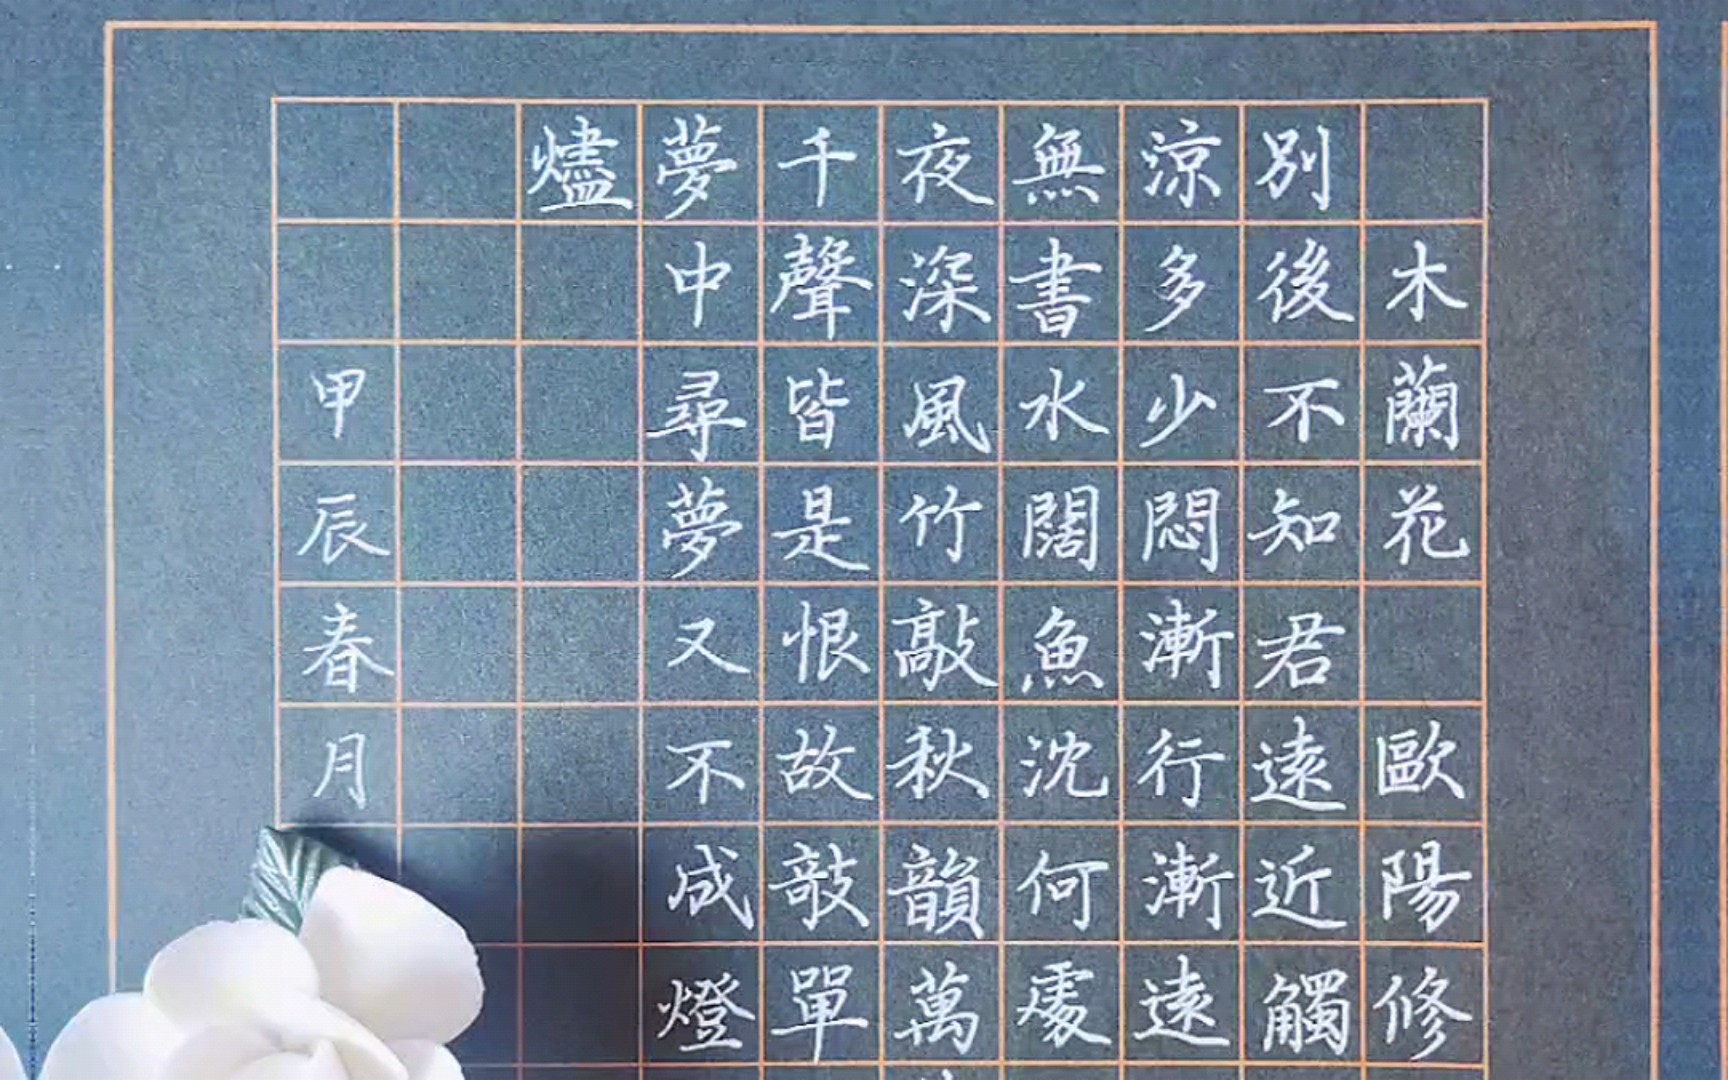 木蘭花 歐陽修
別後不知君遠近觸
涼多少悶漸行漸遠
無書水闊魚沈何處
夜深風竹敲秋韻萬
千聲皆是恨故攲單
夢中尋夢又不成燈
燼
甲辰春月